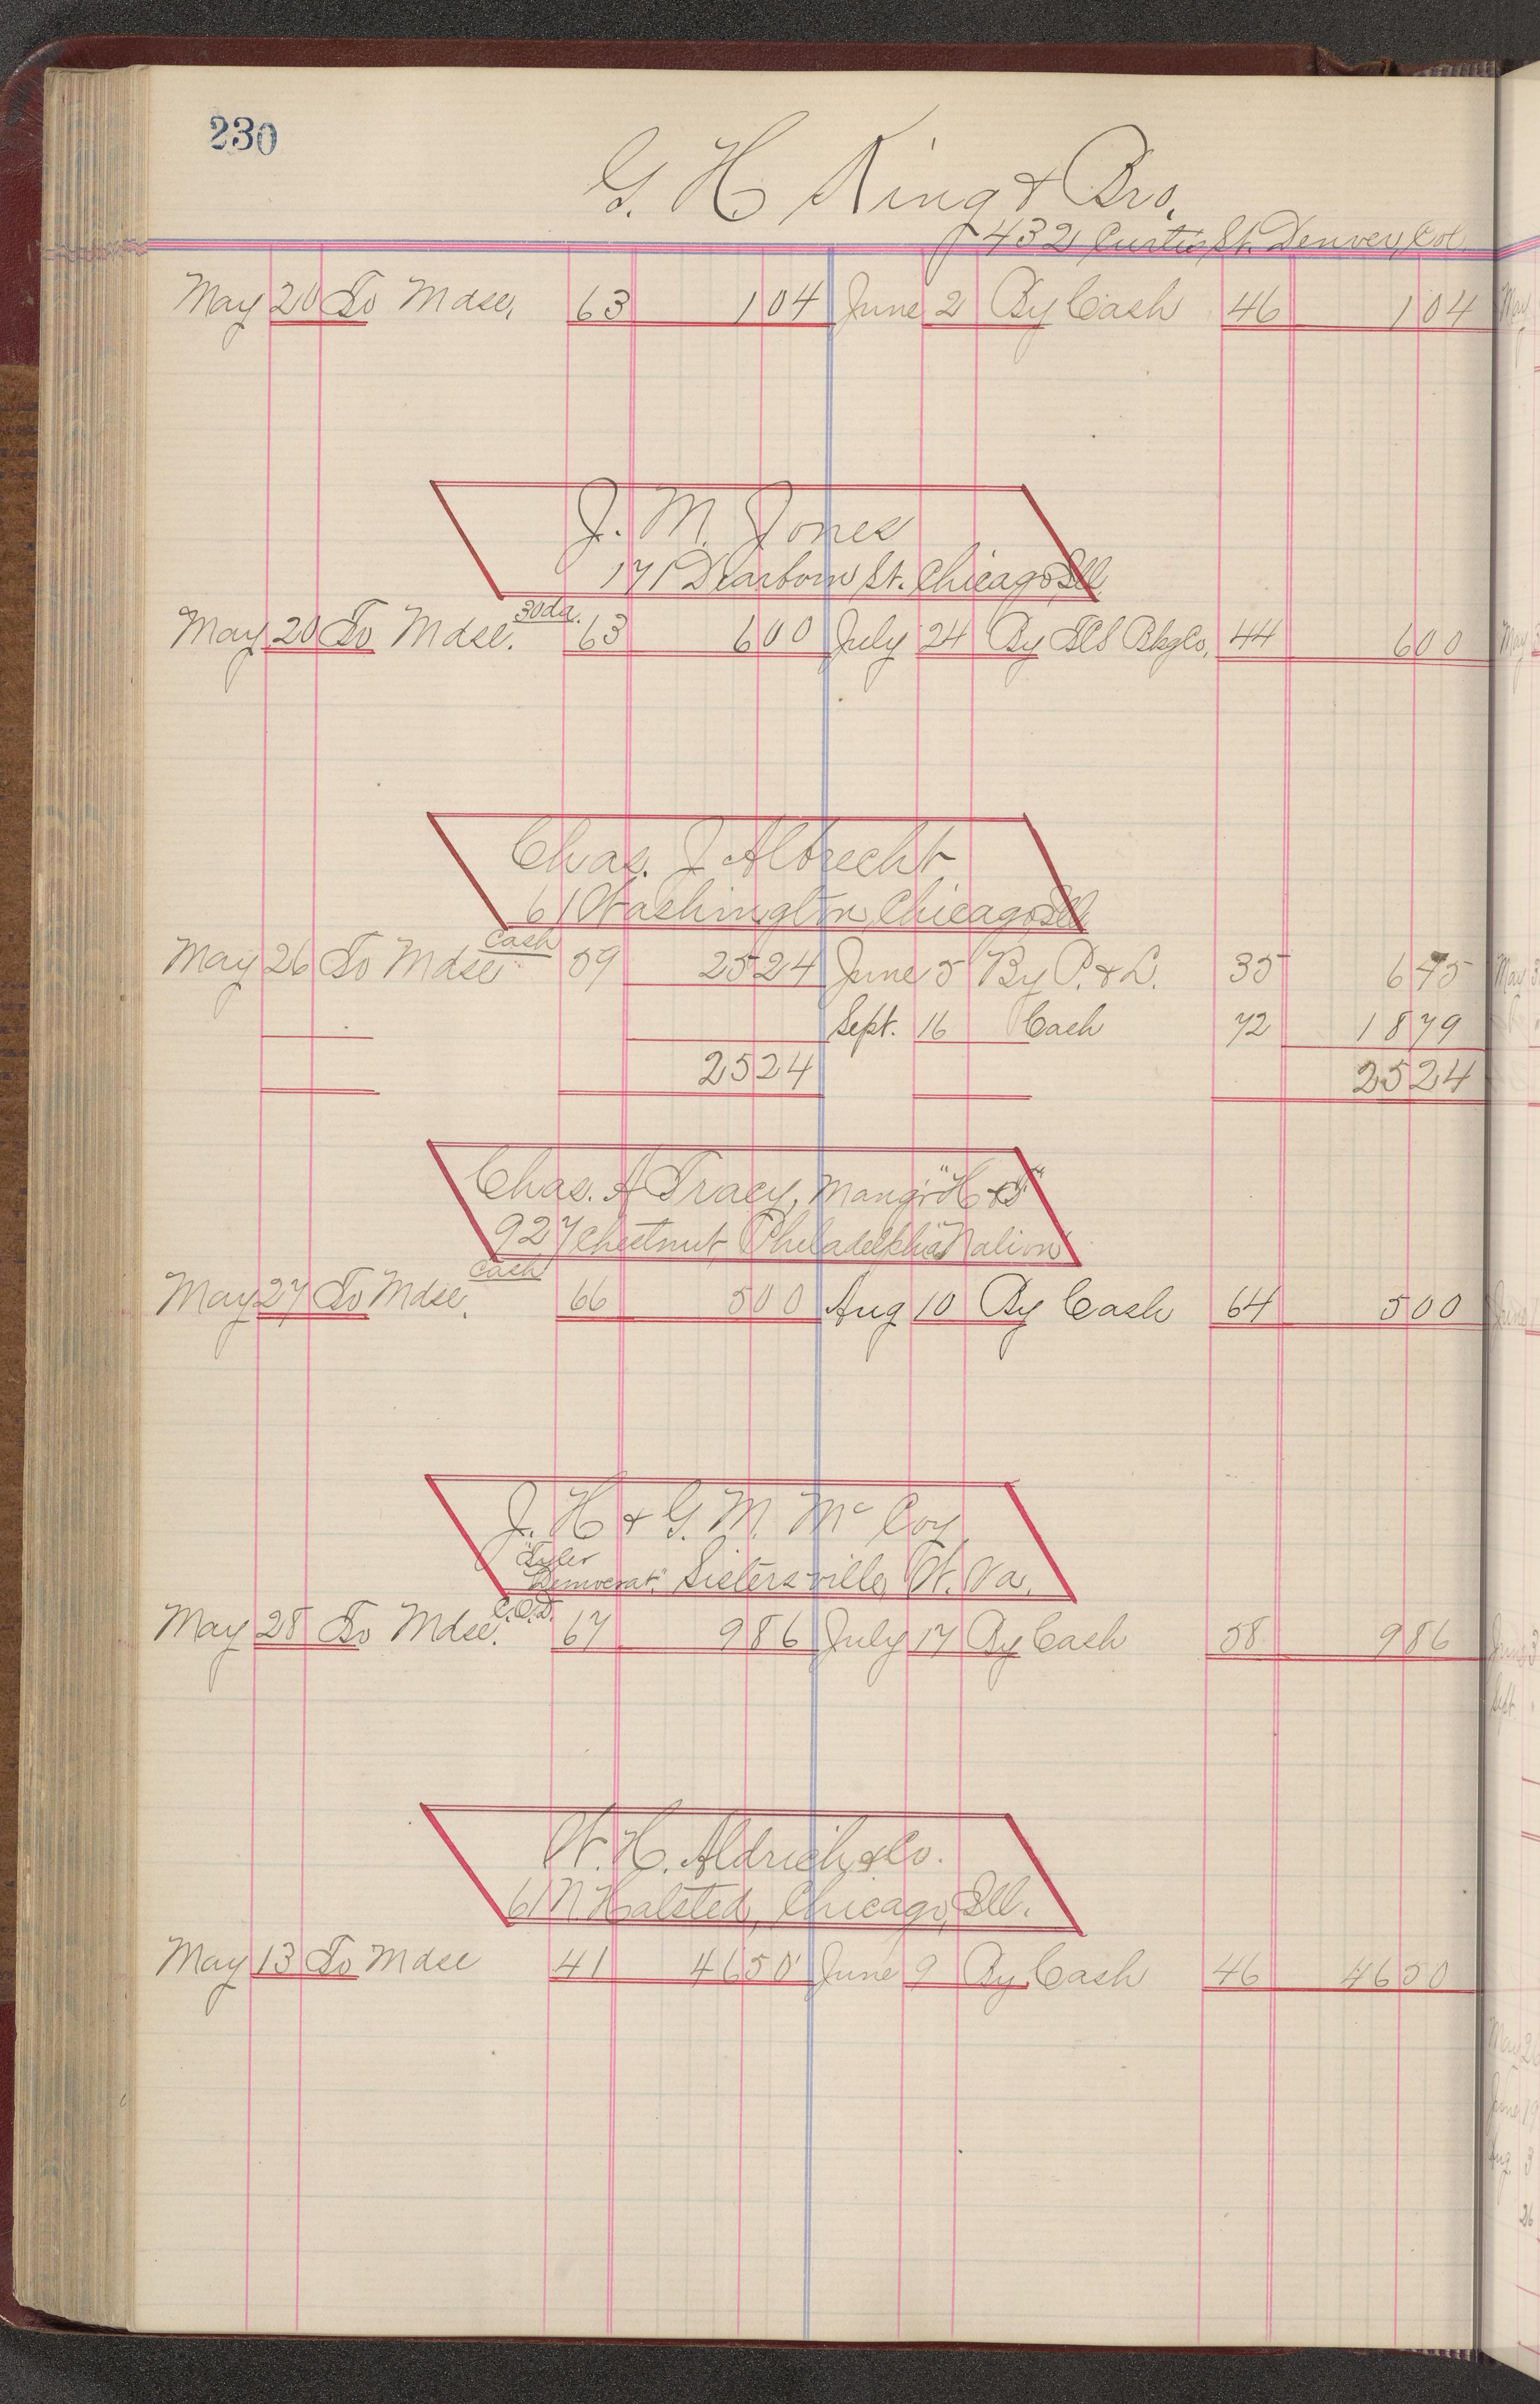 230
G. H. King & Bro.
1432 Curtis St. Denver, Col.
May 20 To Mdse, 63 1 04 June 2 By Cash 46 1 04
J. M. Jones
171 Dearborn St. Chicago, Ill
30 da.
May 20 To Mdse. 63 6 00 July 24 By Bkg Co, 44 6 00
Chas. J Albrecht
61 Washington, Chicago, Ill
Cash
May 26 To Mdse 59 25 24 June 5 By P. & L. 35 6 45
Sept. 16 Cash 72 18 79
25 24 25 24
Chas. A Tracy, Mangr "H &
927 Chestnut, Philadelphia
Cash
May 27 To Mdse. 66 5 00 Aug 10 By Cash 64 5 00
J. H & G. M. Mc Coy
"Tyler
Democrat." Sistersville, W. Va.
C.O.D.
May 28 To Mdse. 67 9 86 July 17 By Cash 58 9 86
W. H. Aldrich & Co.
61 N. Halsted, Chicago, Ill.
May 13 To Mdse 41 46 50 June 9 By Cash 46 46 50